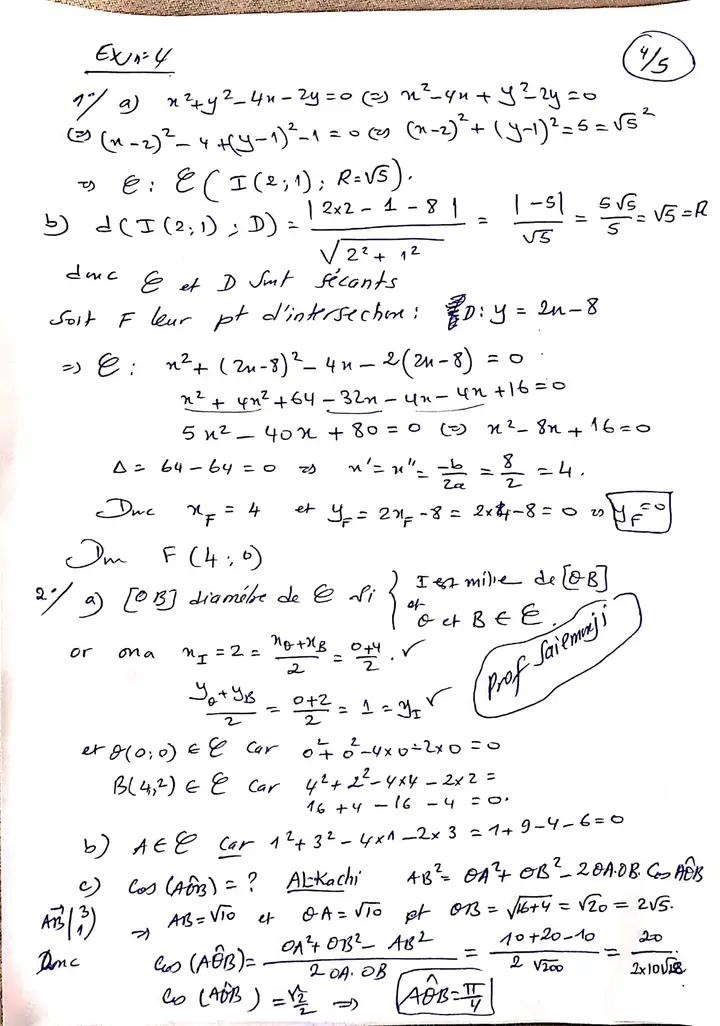 Ex n=4
4/5
1°/ a) x²+y²-4x-2y=0 (=) x²-4x+y²-2y=0
(=) (x-2)²-4+(y-1)²-1=0 (=) (x-2)²+(y-1)²=5=√5²
=> C: C(I(2;1); R=√5).
b) d(I(2;1);D) = |2x2-1-8| / √2²+1² = |-5|/√5 = 5√5/5 = √5 = R
donc C et D sont sécants
Soit F leur pt d'intersection: D: y = 2x-8
=> C: x²+(2x-8)²-4x-2(2x-8) = 0
x²+4x²+64-32x-4x-4x+16=0
5x²-40x+80=0 (=) x²-8x+16=0
Δ = 64-64=0 => x'=x''= -b/2a = 8/2 = 4.
Donc x_F = 4 et y_F = 2x_F-8 = 2x4-8=0 => y_F=0
Donc F(4;0)
2°/ a) [OB] diamètre de C si { I est milieu de [OB]
et
O et B ∈ C.
or on a x_I = 2 = x_O+x_B/2 = 0+4/2. ✓
Prof Saiemonji
y_O+y_B/2 = 0+2/2 = 1 = y_I ✓
et O(0;0) ∈ C car 0²+0²-4x0-2x0=0
B(4,2) ∈ C car 4²+2²-4x4-2x2=
16+4-16-4=0.
b) A∈C car 1²+3²-4x1-2x3=1+9-4-6=0
c) Cos(AÔB)=? AL-Kachi AB²=OA²+OB²-2OA.OB.Cos AÔB
AB(3 1) => AB=√10 et OA=√10 et OB=√16+4=√20=2√5.
Donc Cos(AÔB)= OA²+OB²-AB² / 2OA.OB = 10+20-10 / 2√200 = 20 / 2x10√2
Co(AÔB)=√2/2 => AÔB=π/4